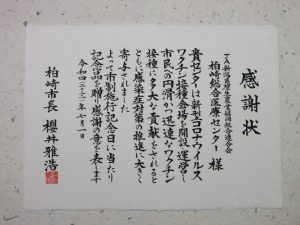 感謝状
JA新潟県厚生農業協同組合連合会
柏崎総合医療センター 様
貴センターは新型コロナウイルス
ワクチン接種会場を開設運営し
市民の円滑かつ迅速なワクチン
接種に多大な貢献をされると
ともに感染症対策の推進に大きく
寄与されました
よって市制施行記念日に当たり
記念品を贈り感謝の意を表します
令和四年七月一日
柏崎市長 櫻井雅浩